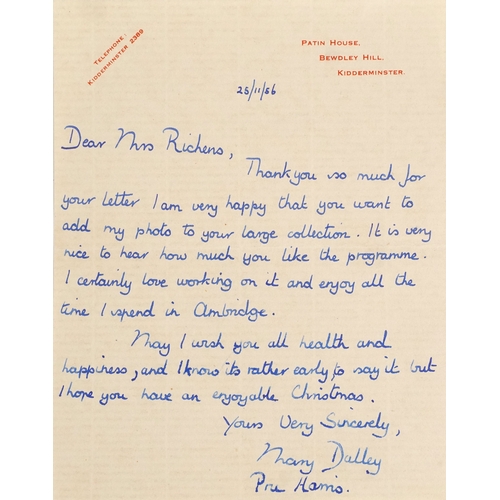 TELEPHONE:
KIDDERMINSTER 2389
PATIN HOUSE,
BEWDLEY HILL,
KIDDERMINSTER.
25/11/56
Dear Mrs Richens,
Thankyou so much for
your letter I am very happy that you want to
add my photo to your large collection. It is very
nice to hear how much you like the programme.
I certainly love working on it and enjoy all the
time I spend in Ambridge.
May I wish you all health and
happiness, and I know its rather early to say it but
I hope you have an enjoyable Christmas.
Yours Very Sincerely,
Mary Dalley
Pru Harris.